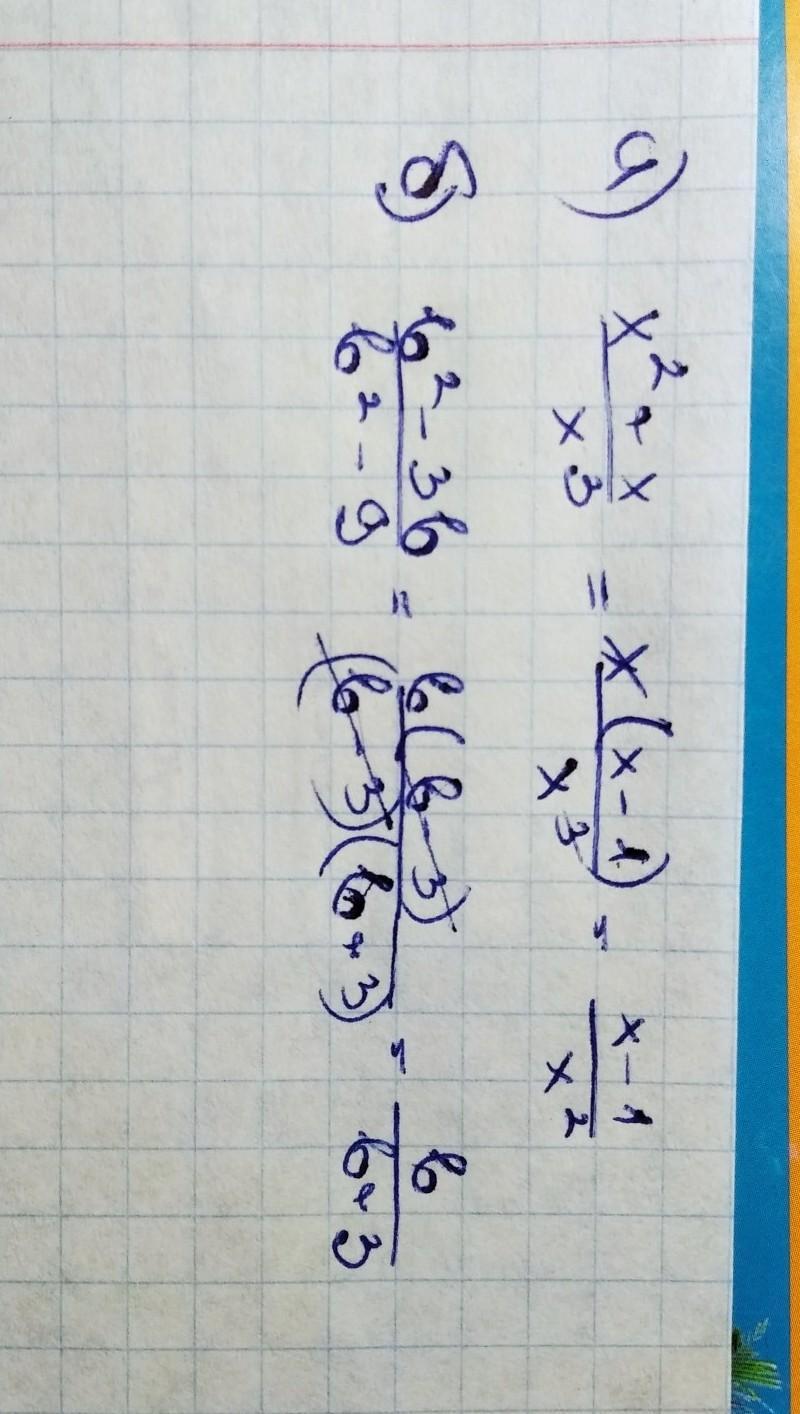 а) (x² + x)/x³ = x(x - 1)/x³ = (x - 1)/x²
б) (b² - 3b)/(b² - 9) = b(b - 3)/((b - 3)(b + 3)) = b/(b + 3)